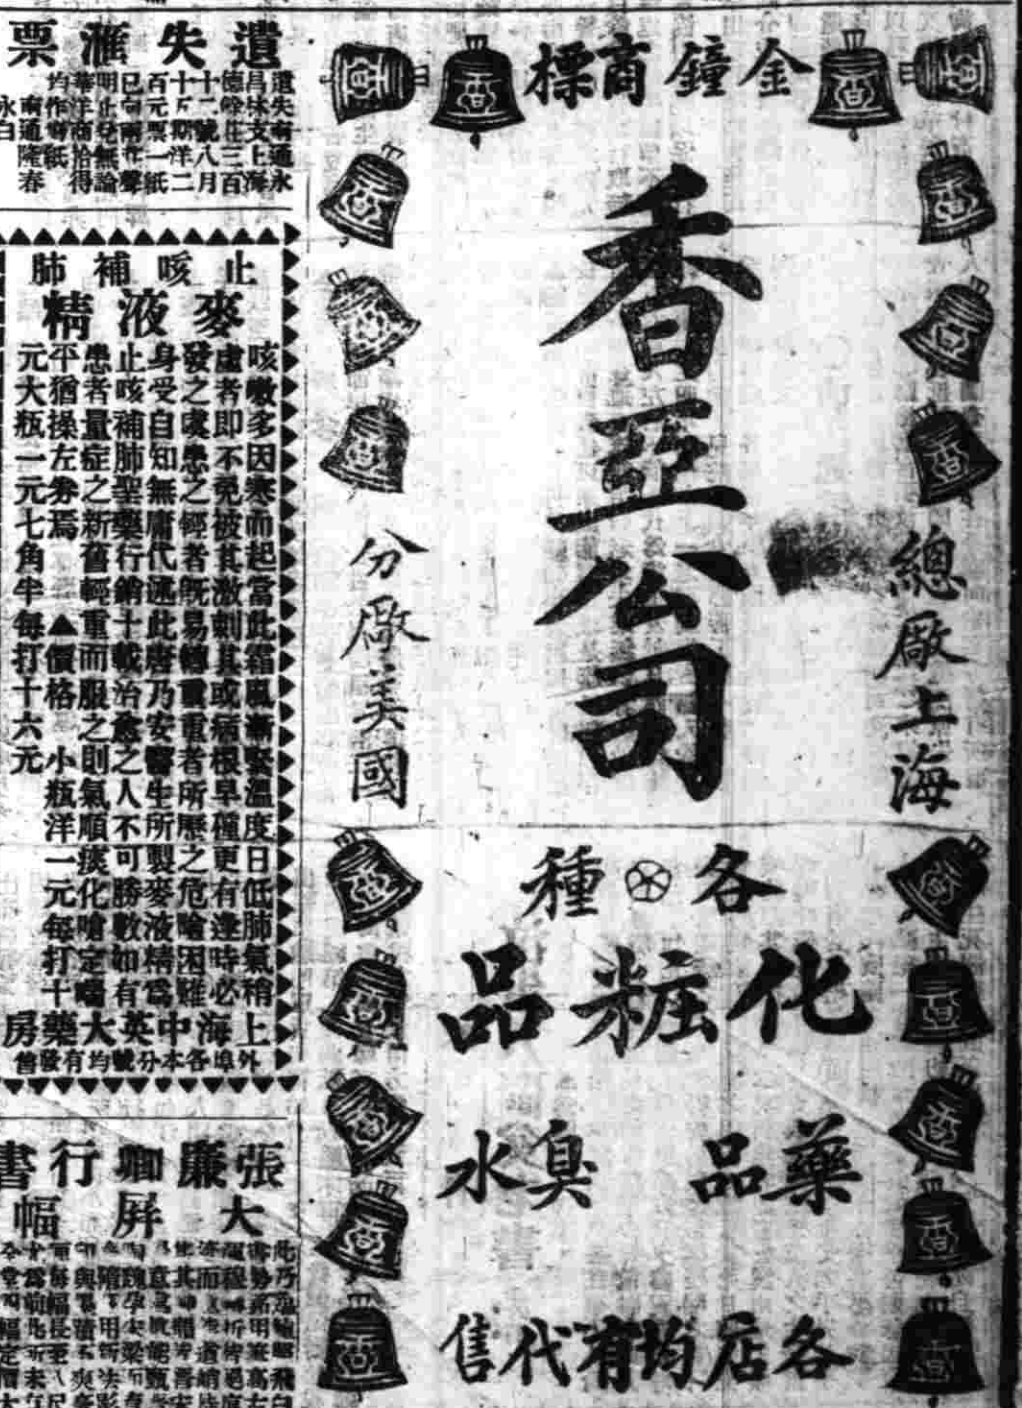 金鐘商標
香亞公司
總廠上海
分廠美國
各種
化粧品
藥品 臭水
各店均有代售
遺失滙票
遺失南通永
昌林支上海
德餘庄三百
十二號八月
十五期洋二
百元票一紙
已向兩庄聲
明止兌無論
華洋商拾得
均作廢紙
南通隆春
永白
止咳補肺
麥液精
咳嗽多因寒而起當此霜風漸緊溫度日低肺氣稍
虛者即不免被其激刺其或病根早種更有逢時必
發之虞患之輕者既易轉重重者所歷之危險困難
身受自知無庸代述此唐乃安醫生所製麥液精為
止咳補肺聖藥行銷十載治愈之人不可勝數如有
患者量症之新舊輕重而服之則氣順痰化嗆定喘
平猶操左劵焉 ▲價格 小瓶洋一元每打十
元大瓶一元七角半每打十六元
上海中英大藥房
外埠各本分號均有發售
張廉卿行書
大屏幅